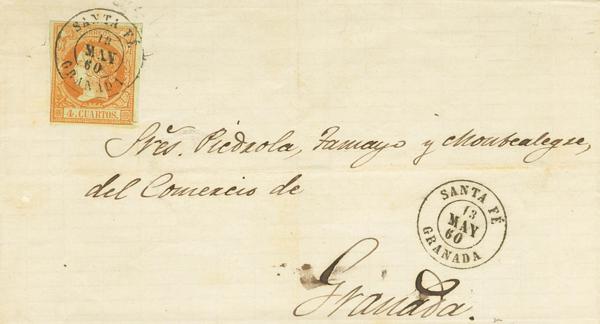 SANTA FÉ
13
MAY
60
GRANADA
4 CUARTOS.
Sres. Piedrola, Tamayo y Montealegre,
del Comercio de
SANTA FÉ
13
MAY
60
GRANADA
Granada.